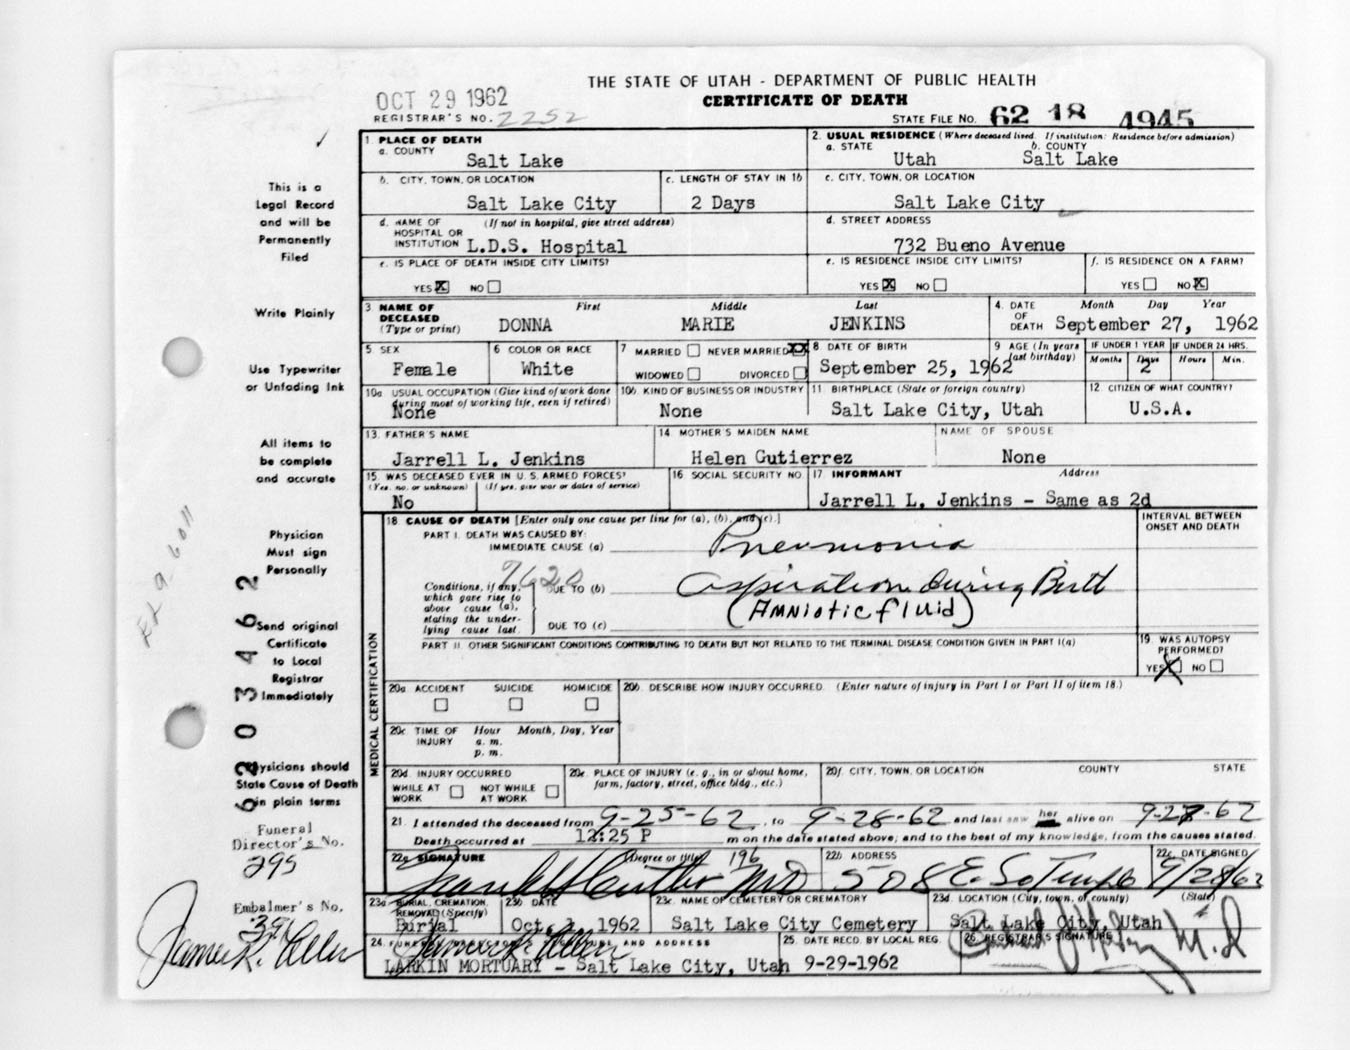 THE STATE OF UTAH - DEPARTMENT OF PUBLIC HEALTH
OCT 29 1962
CERTIFICATE OF DEATH
REGISTRAR'S NO. 2252
STATE FILE NO. 62 18 4945
This is a
Legal Record
and will be
Permanently
Filed
Write Plainly
Use Typewriter
or Unfading Ink
All items to
be complete
and accurate
Physician
Must sign
Personally
Send original
Certificate
to Local
Registrar
Immediately
Physicians should
State Cause of Death
in plain terms
Funeral
Director's No.
295
Embalmer's No.
391
James R. Allen
62 20 3462
1. PLACE OF DEATH
a. COUNTY Salt Lake
2. USUAL RESIDENCE (Where deceased lived. If institution: Residence before admission)
a. STATE Utah b. COUNTY Salt Lake
b. CITY, TOWN, OR LOCATION Salt Lake City
c. LENGTH OF STAY IN 1b 2 Days
c. CITY, TOWN, OR LOCATION Salt Lake City
d. NAME OF HOSPITAL OR INSTITUTION (If not in hospital, give street address) L.D.S. Hospital
d. STREET ADDRESS 732 Bueno Avenue
e. IS PLACE OF DEATH INSIDE CITY LIMITS? YES X NO
e. IS RESIDENCE INSIDE CITY LIMITS? YES X NO
f. IS RESIDENCE ON A FARM? YES NO X
3 NAME OF DECEASED (Type or print) First Middle Last
DONNA MARIE JENKINS
4. DATE OF DEATH Month Day Year
September 27, 1962
5 SEX Female
6 COLOR OR RACE White
7 MARRIED NEVER MARRIED XX WIDOWED DIVORCED
8. DATE OF BIRTH September 25, 1962
9 AGE (In years last birthday) IF UNDER 1 YEAR Months Days 2 IF UNDER 24 HRS. Hours Min.
10a USUAL OCCUPATION (Give kind of work done during most of working life, even if retired) None
10b. KIND OF BUSINESS OR INDUSTRY None
11 BIRTHPLACE (State or foreign country) Salt Lake City, Utah
12. CITIZEN OF WHAT COUNTRY? U.S.A.
13. FATHER'S NAME Jarrell L. Jenkins
14 MOTHER'S MAIDEN NAME Helen Gutierrez
NAME OF SPOUSE None
15. WAS DECEASED EVER IN U. S. ARMED FORCES? (Yes, no, or unknown) (If yes, give war or dates of service) No
16 SOCIAL SECURITY NO.
17 INFORMANT Address
Jarrell L. Jenkins - Same as 2d
MEDICAL CERTIFICATION
18 CAUSE OF DEATH [Enter only one cause per line for (a), (b), and (c).]
INTERVAL BETWEEN ONSET AND DEATH
PART I. DEATH WAS CAUSED BY:
IMMEDIATE CAUSE (a) Pneumonia
Conditions, if any, which gave rise to above cause (a), stating the underlying cause last.
7620
DUE TO (b) aspiration during Birth
(Amniotic fluid)
DUE TO (c)
PART II. OTHER SIGNIFICANT CONDITIONS CONTRIBUTING TO DEATH BUT NOT RELATED TO THE TERMINAL DISEASE CONDITION GIVEN IN PART I(a)
19. WAS AUTOPSY PERFORMED? YES X NO
20a ACCIDENT SUICIDE HOMICIDE
20b. DESCRIBE HOW INJURY OCCURRED. (Enter nature of injury in Part I or Part II of item 18.)
20c. TIME OF INJURY Hour a. m. p. m. Month, Day, Year
20d. INJURY OCCURRED WHILE AT WORK NOT WHILE AT WORK
20e. PLACE OF INJURY (e. g., in or about home, farm, factory, street, office bldg., etc.)
20f. CITY, TOWN, OR LOCATION COUNTY STATE
21. I attended the deceased from 9-25-62, to 9-28-62 and last saw her alive on 9-27-62
Death occurred at 12:25 P m on the date stated above; and to the best of my knowledge, from the causes stated.
22a SIGNATURE (Degree or title) 196 MD
22b ADDRESS 508 E. So Temple
22c. DATE SIGNED 9/28/62
23a BURIAL, CREMATION, REMOVAL (Specify) Burial
23b DATE Oct. 1, 1962
23c. NAME OF CEMETERY OR CREMATORY Salt Lake City Cemetery
23d. LOCATION (City, town, or county) (State) Salt Lake City, Utah
24. FUNERAL DIRECTOR'S SIGNATURE AND ADDRESS
James R. Allen
LARKIN MORTUARY - Salt Lake City, Utah
25. DATE RECD. BY LOCAL REG. 9-29-1962
26. REGISTRAR'S SIGNATURE
M.D